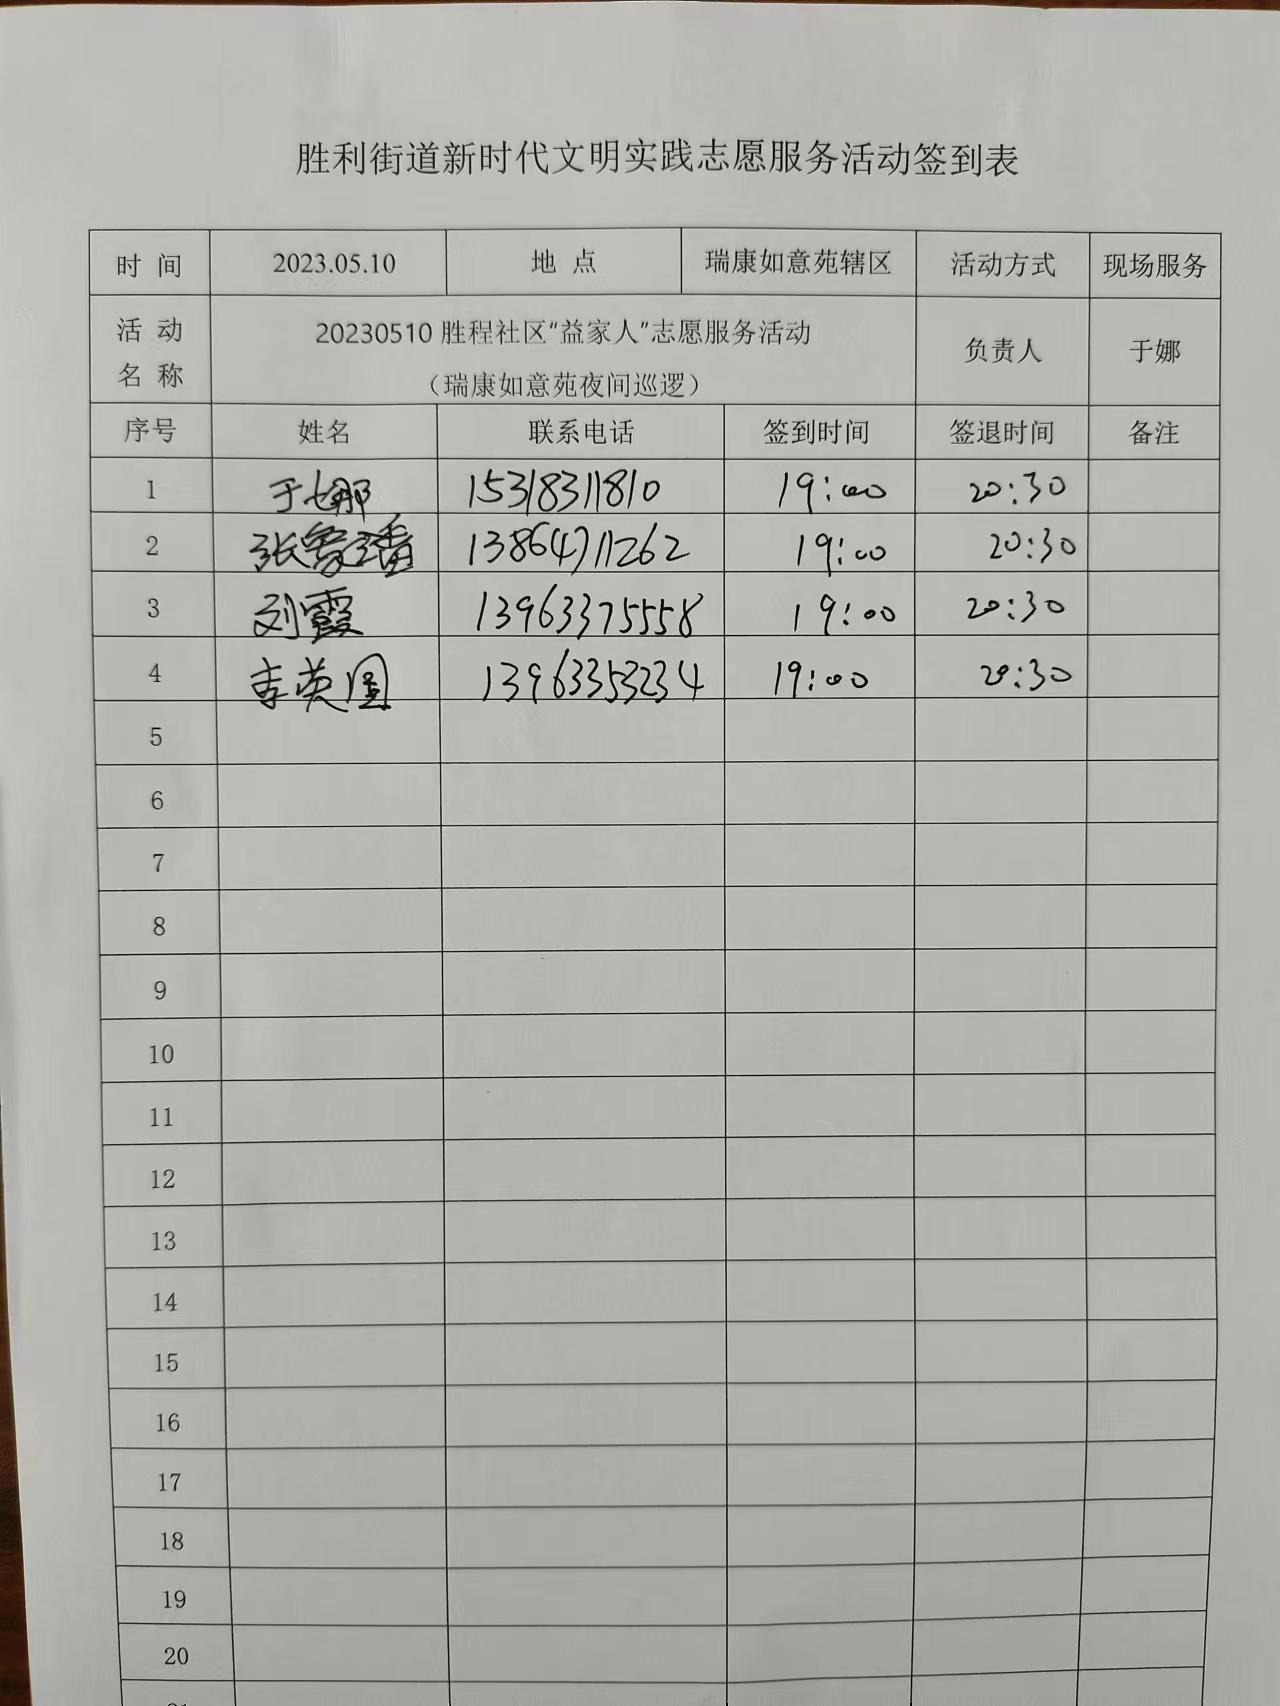 胜利街道新时代文明实践志愿服务活动签到表
时 间 2023.05.10 地 点 瑞康如意苑辖区 活动方式 现场服务
活 动 名 称 20230510 胜程社区“益家人”志愿服务活动 负责人 于娜
（瑞康如意苑夜间巡逻）
序号 姓名 联系电话 签到时间 签退时间 备注
1 于娜 15318311810 19:00 20:30
2 张鲁潘 13864711262 19:00 20:30
3 刘霞 13963375558 19:00 20:30
4 李英国 13963353234 19:00 20:30
5
6
7
8
9
10
11
12
13
14
15
16
17
18
19
20